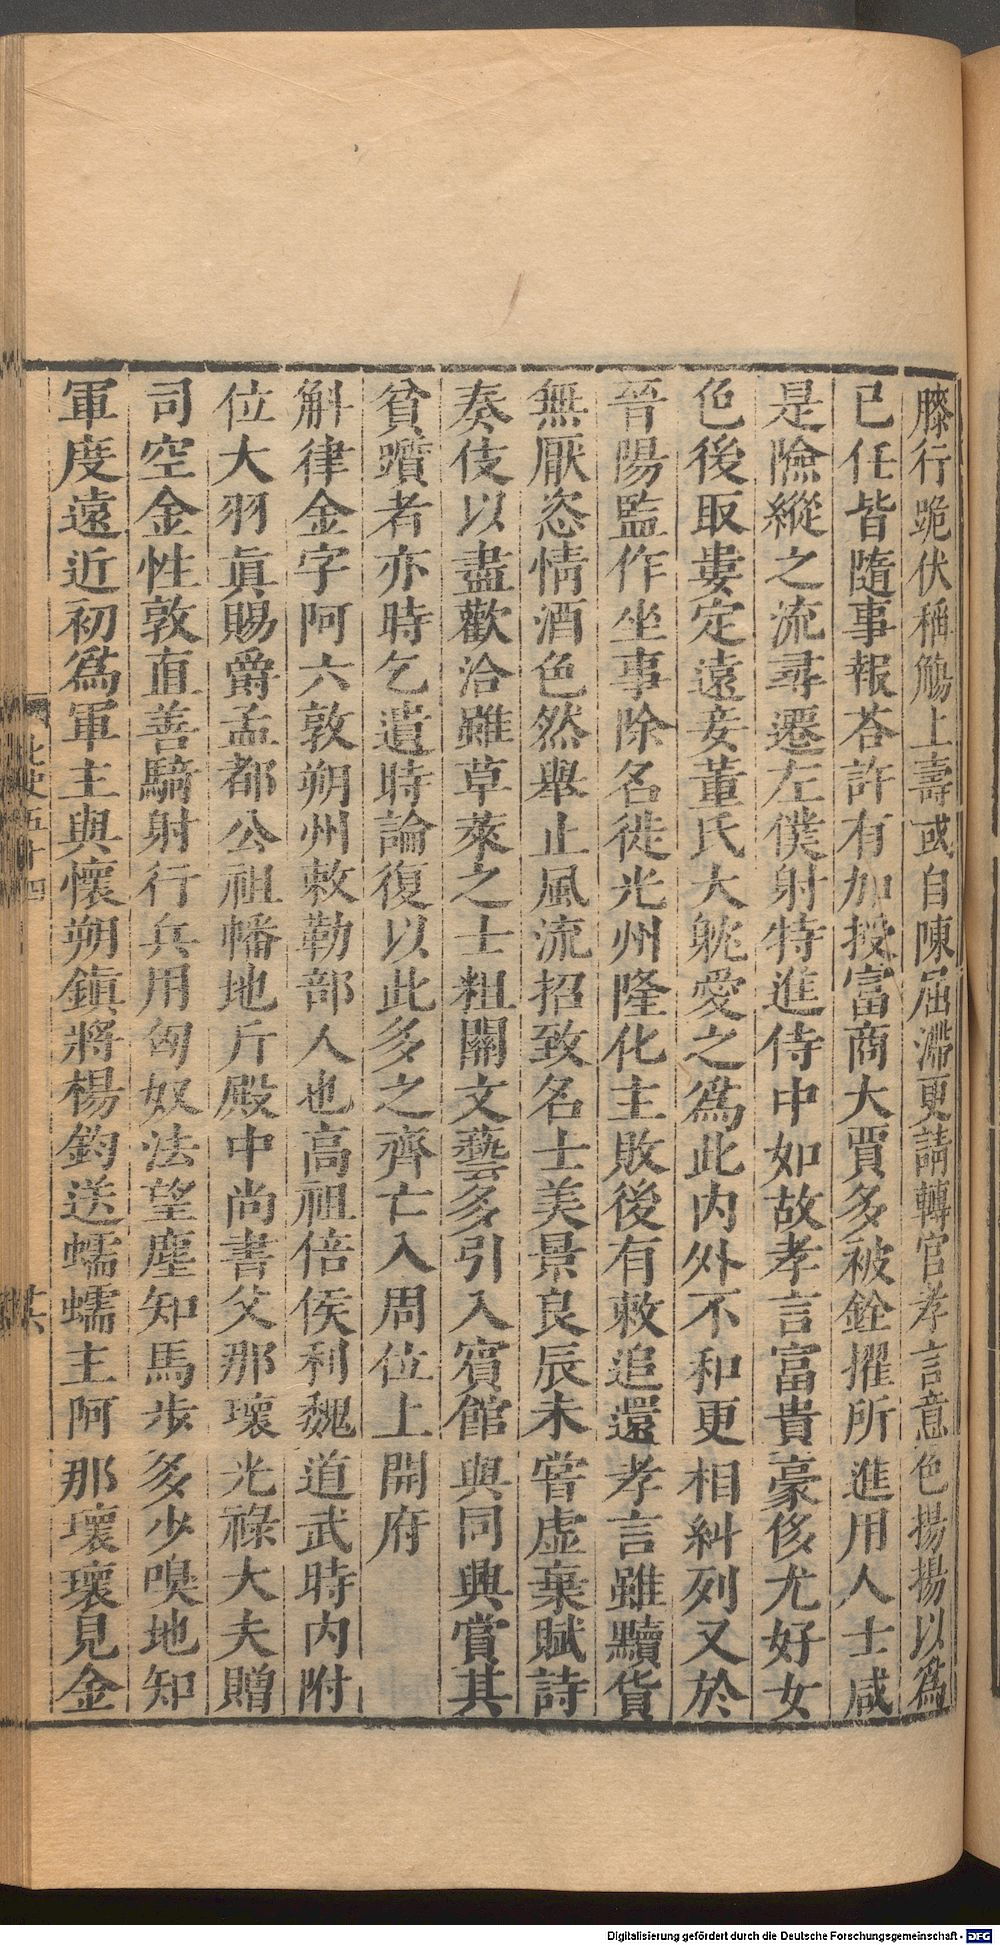 膝行跪伏稱觴上壽或自陳屈滯更請轉官孝言意色揚揚以爲
已任皆隨事報荅許有加授富商大賈多被銓擢所進用人士咸
是險縱之流尋遷左僕射特進侍中如故孝言富貴豪侈尤好女
色後取婁定遠妾董氏大躭愛之爲此內外不和更相糾列又於
晉陽監作坐事除名徙光州隆化主敗後有敕追還孝言雖黷貨
無厭恣情酒色然舉止風流招致名士美景良辰未嘗虛棄賦詩
奏伎以盡歡洽雖草萊之士粗閑文藝多引入賓館與同興賞其
貧躓者亦時乞遺時論復以此多之齊亡入周位上開府
斛律金字阿六敦朔州敕勒部人也高祖倍侯利魏道武時內附
位大羽眞賜爵孟都公祖幡地斤殿中尚書父那瓌光祿大夫贈
司空金性敦直善騎射行兵用匈奴法望塵知馬步多少嗅地知
軍度遠近初爲軍主與懷朔鎮將楊鈞送蠕蠕主阿那瓌瓌見金
北史五十四
Digitalisierung gefördert durch die Deutsche Forschungsgemeinschaft - DFG